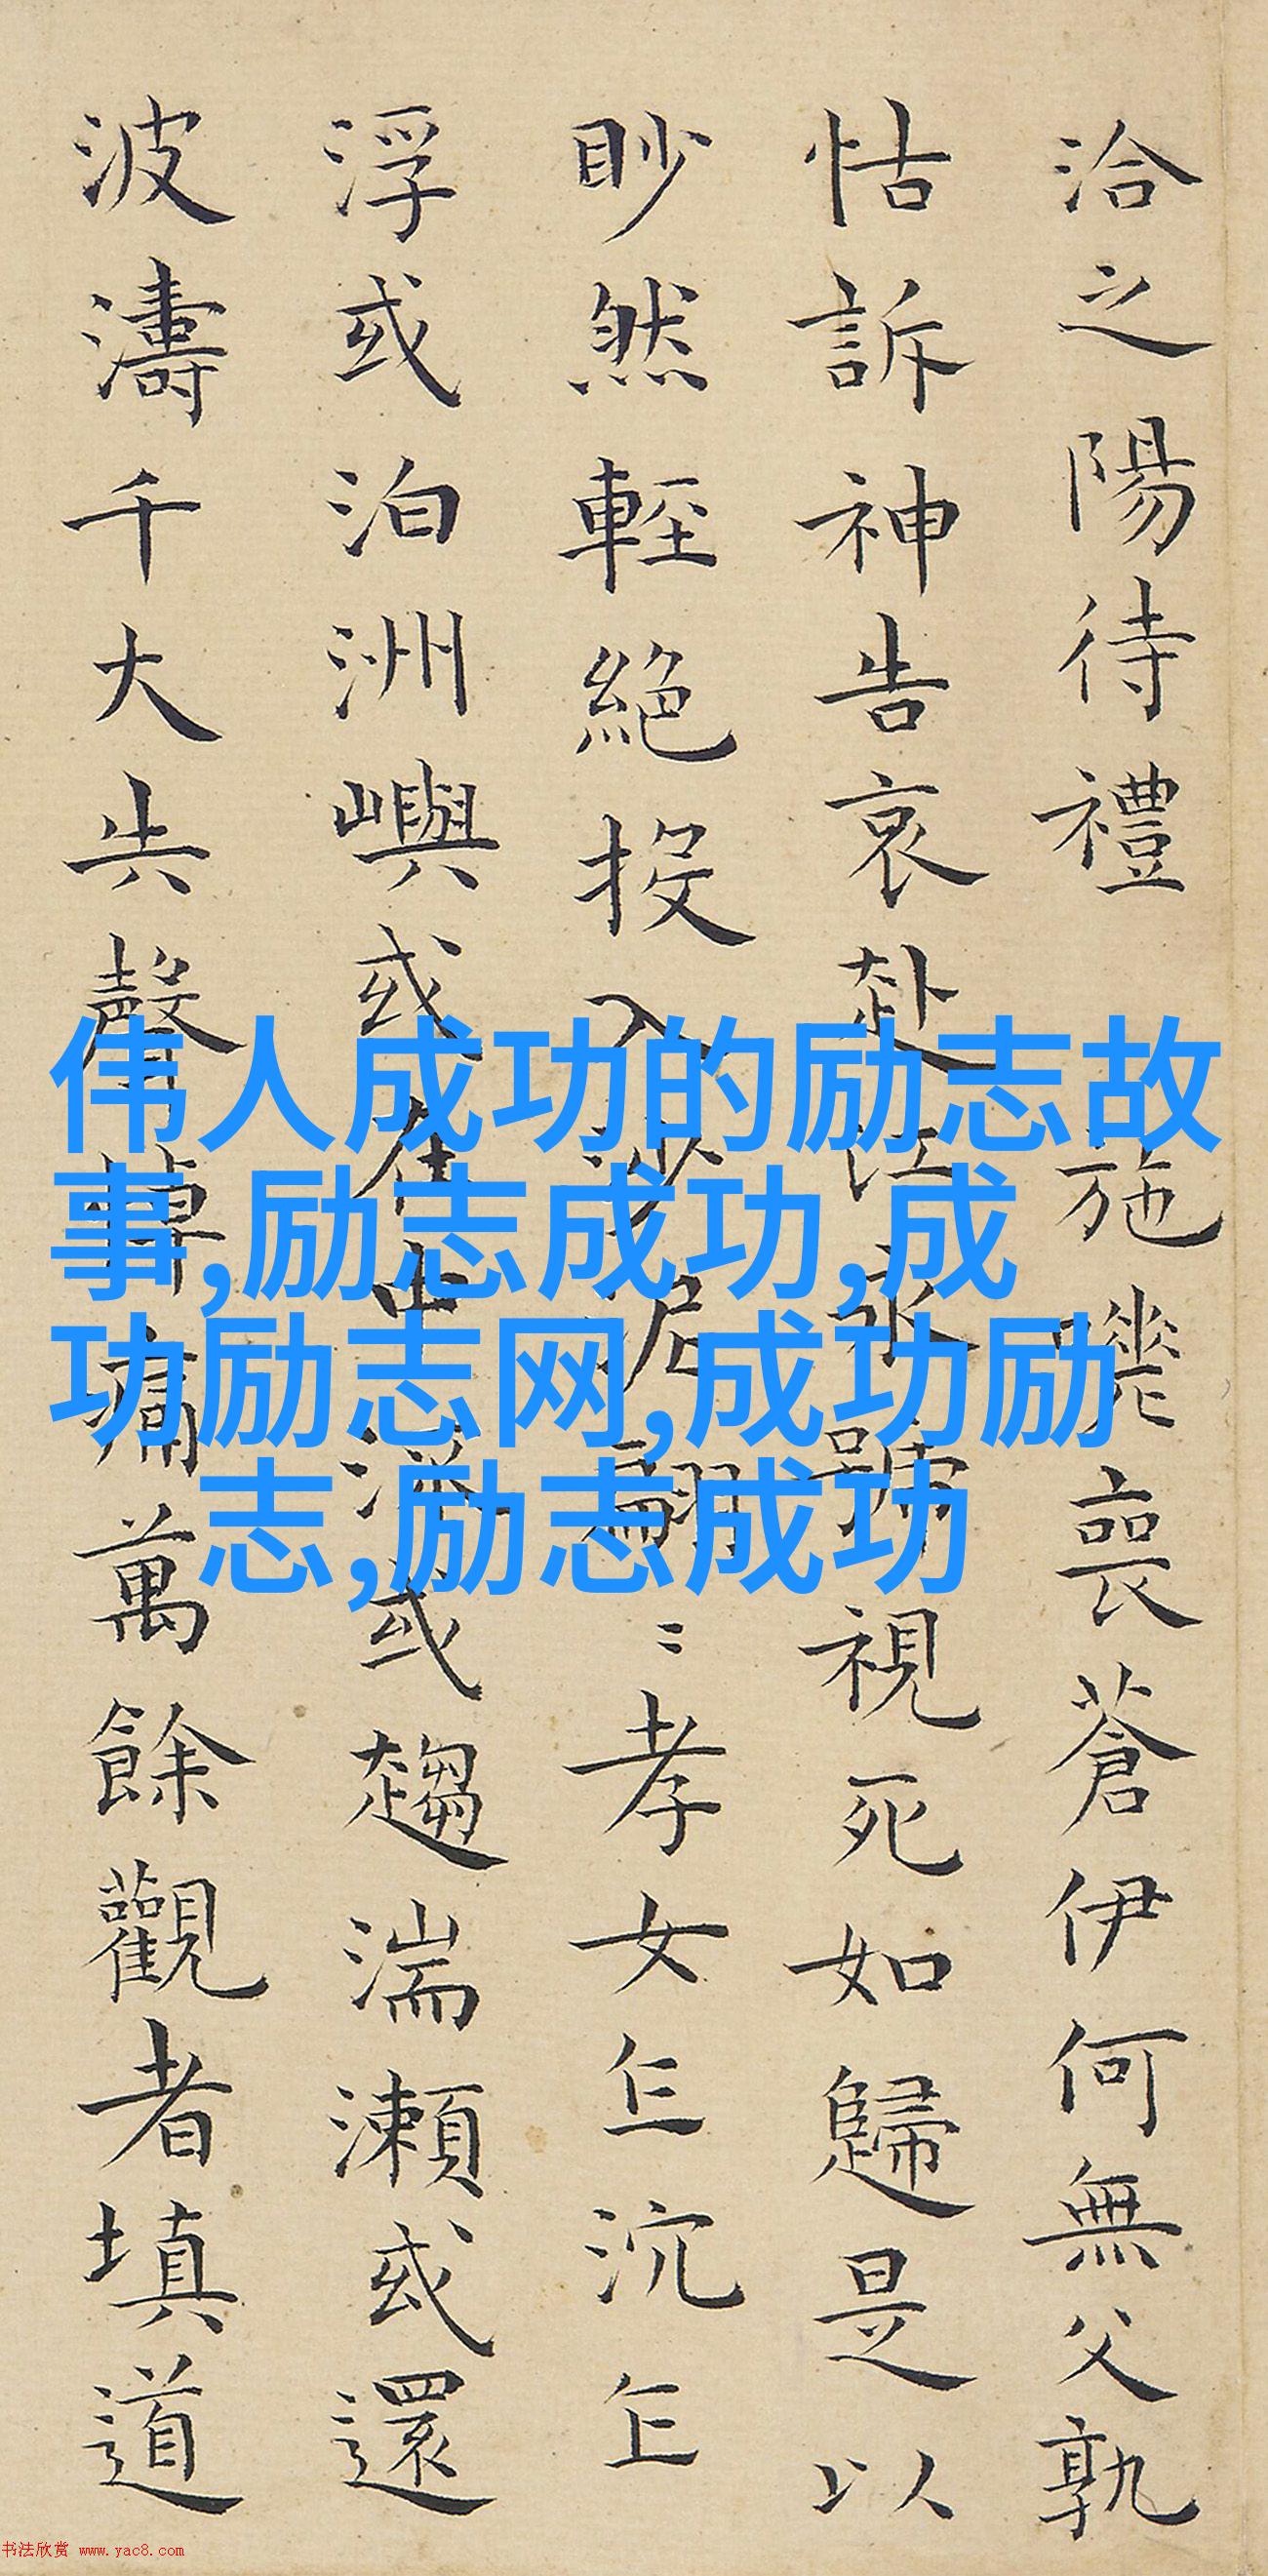 洽之陽待禮施嗟喪蒼伊何無父孰
怙訴神告哀赴江永號視死如歸是以
眇然輕絕投入沙泥翩翩〻孝女乍沉乍
浮或泊洲嶼或在中流或趨湍瀨或還
波濤千大失聲悼痛萬餘觀者填道
伟人成功的励志故
事,励志成功,成
功励志网,成功励
志,励志成功
书法欣赏 www.yac8.com